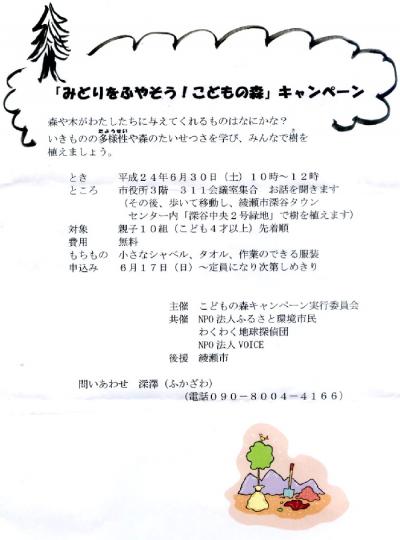 「みどりをふやそう！こどもの森」キャンペーン
森や木がわたしたちに与えてくれるものはなにかな？
いきものの多様性や森のたいせつさを学び、みんなで樹を
植えましょう。
とき　平成２４年６月３０日（土）１０時～１２時
ところ　市役所３階　３１１会議室集合　お話を聞きます
（その後、歩いて移動し、綾瀬市深谷タウン
センター内「深谷中央２号緑地」で樹を植えます）
対象　親子１０組（こども４才以上）先着順
費用　無料
もちもの　小さなシャベル、タオル、作業のできる服装
申込み　６月１７日（日）～定員になり次第しめきり
主催　こどもの森キャンペーン実行委員会
共催　NPO法人ふるさと環境市民
わくわく地球探偵団
NPO法人VOICE
後援　綾瀬市
問いあわせ　深澤（ふかざわ）
（電話０９０－８００４－４１６６）